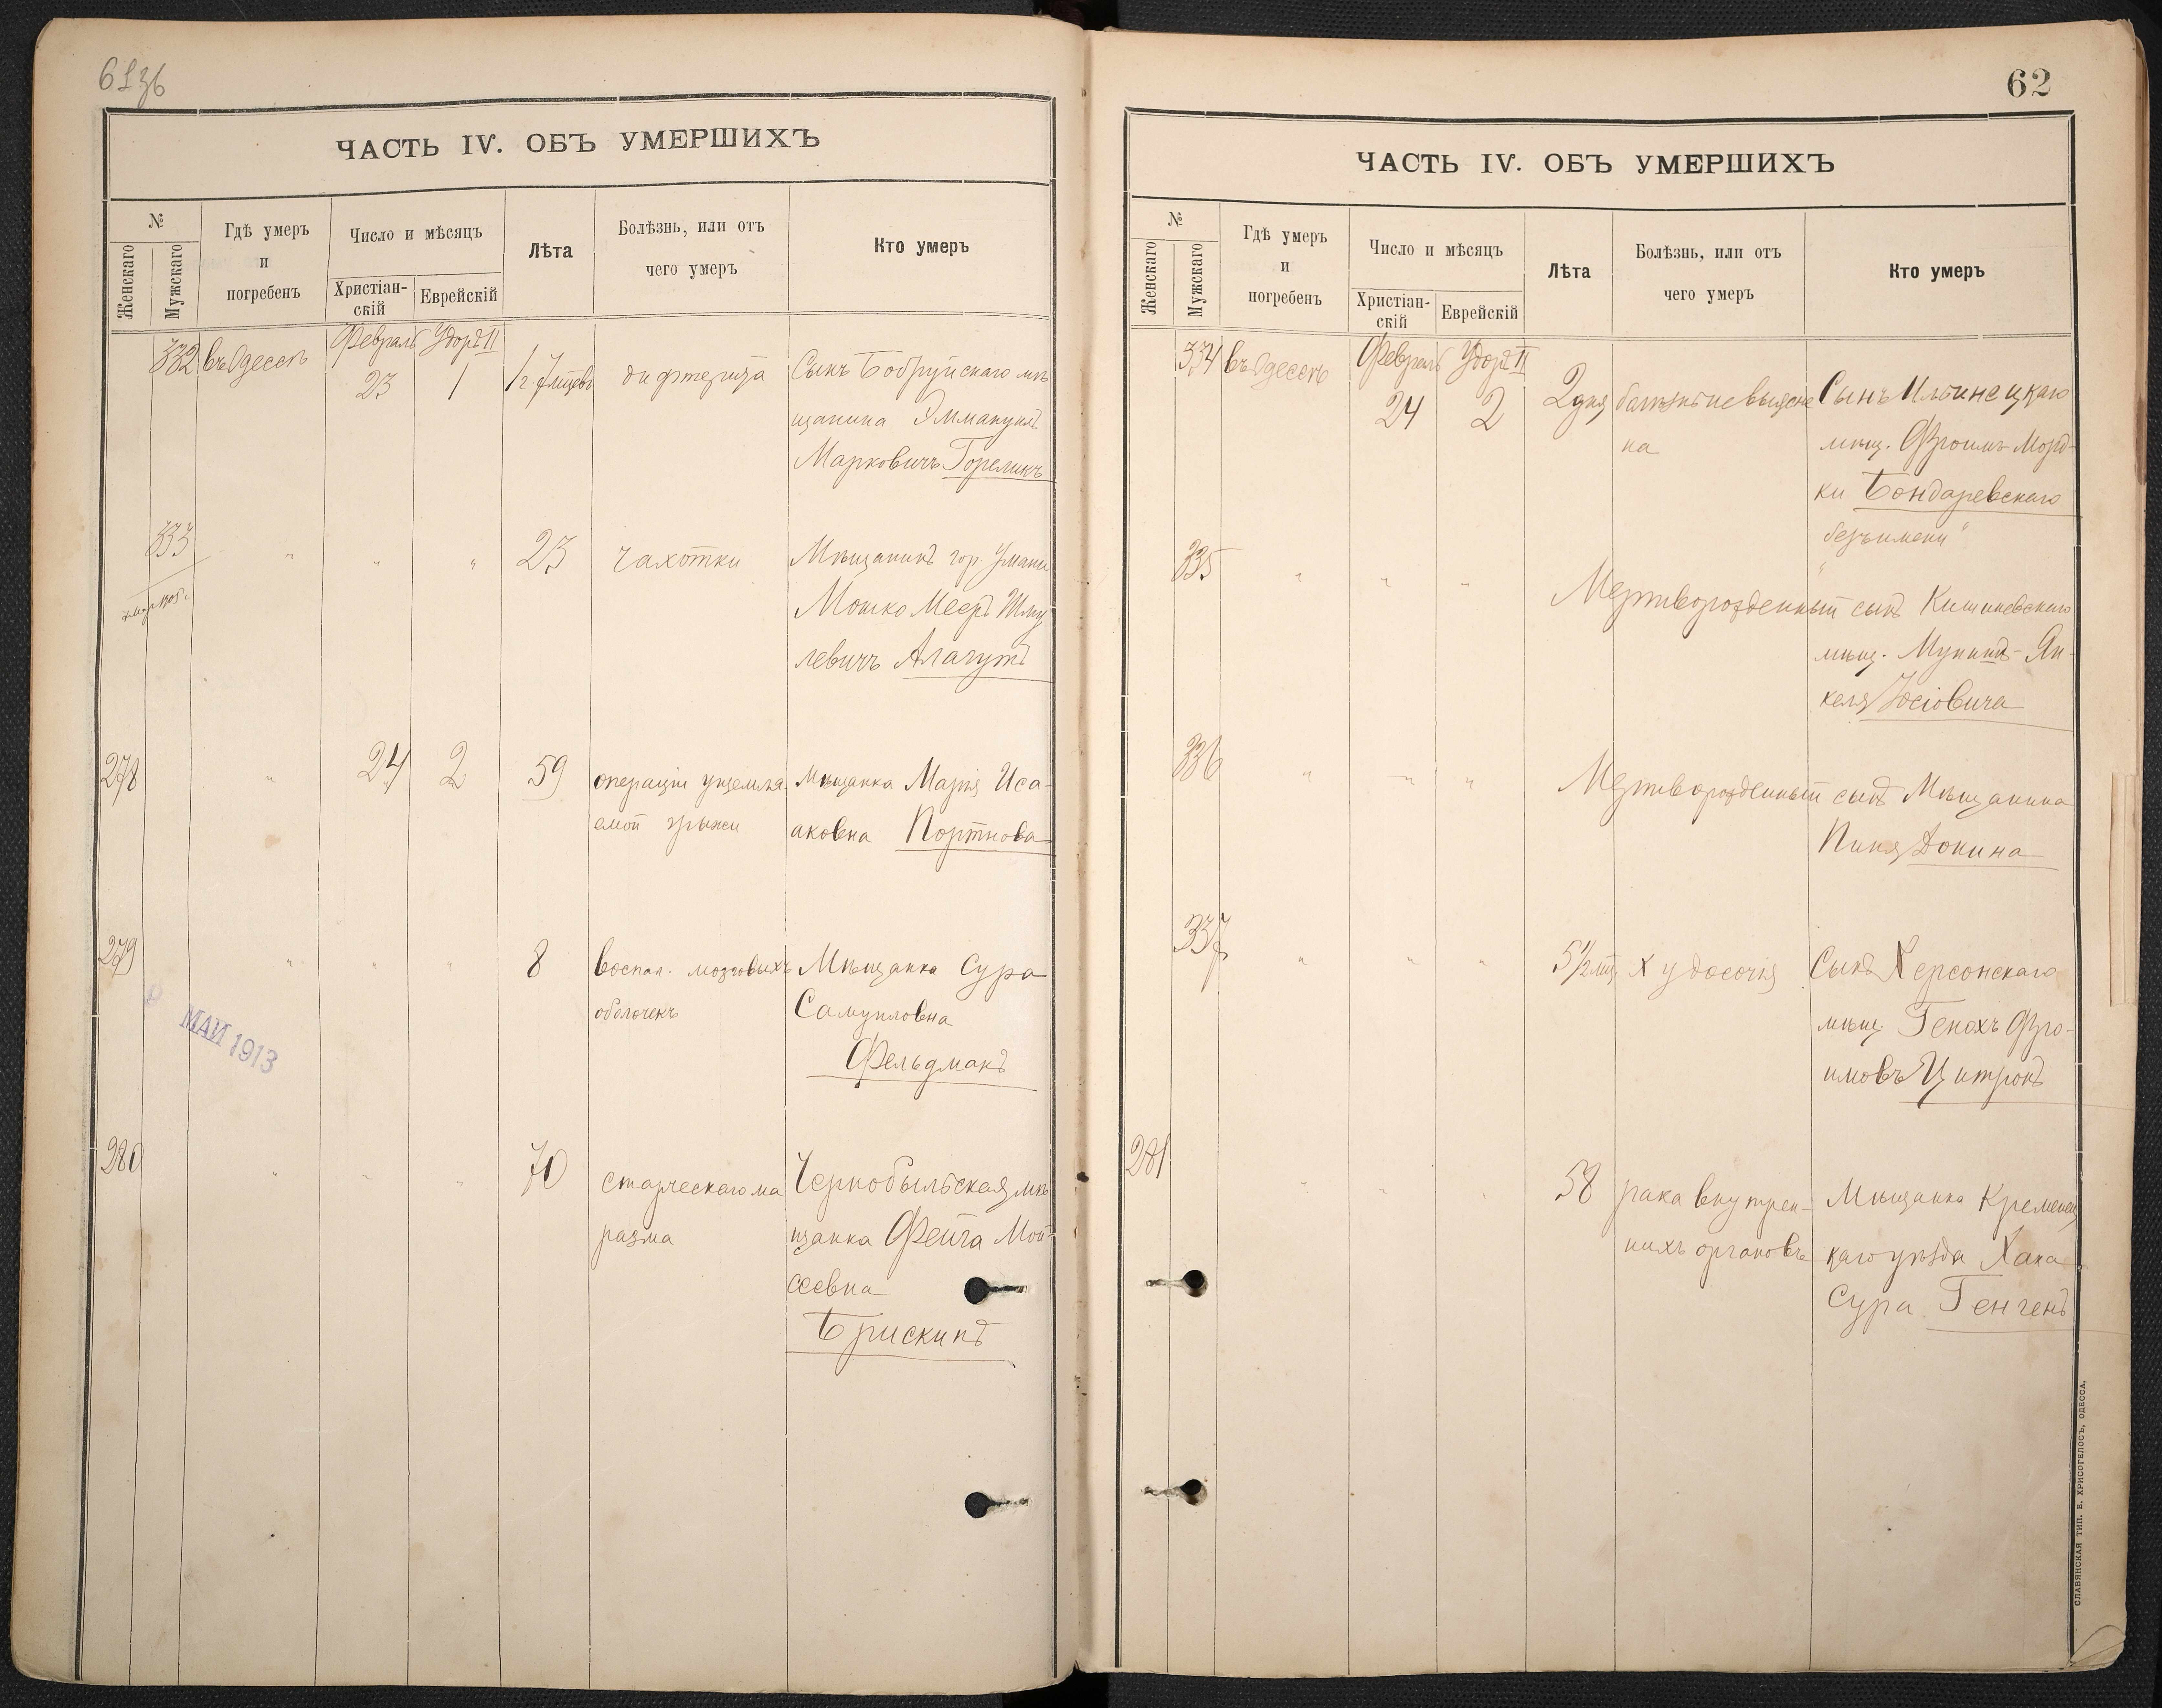 ЧАСТЬ IV. ОБЪ УМЕРШИХЪ
№
Женскаго
Мужскаго
Гдѣ умеръ
и
погребенъ
Число и мѣсяцъ
Христіан-
скій
Еврейскій
Лѣта
Болѣзнь, или отъ
чего умеръ
Кто умеръ
332 въ Одессѣ Февраль Удоръ II
23 1 дифтерита Сынъ Бобруйскаго мѣ
щанина Эммануилъ
Марковичъ Гореликъ
333 " " " 23 чахотки Мѣщанинъ гор. Умани
Мошко Мееръ Шму
левичъ Алагутъ
278 " 24 2 59 операціи ущемля- Мѣщанка Марія Иса-
емой грыжи аковна Портнова
279 " " " 8 воспал. мозговыхъ Мѣщанка Сура
оболочекъ Самуиловна
Фельдманъ
МАЙ 1913
280 " " " 70 старческаго ма Чернобыльская мѣ
разма щанка Фейга Мой-
сеевна
Брискинъ
62
ЧАСТЬ IV. ОБЪ УМЕРШИХЪ
№
Женскаго
Мужскаго
Гдѣ умеръ
и
погребенъ
Число и мѣсяцъ
Христіан-
скій
Еврейскій
Лѣта
Болѣзнь, или отъ
чего умеръ
Кто умеръ
334 въ Одессѣ Февраль Удоръ II
24 2 2 дня болѣзнь невыясне Сынъ Ильинецкаго
на мѣщ. Фроимъ-Морд-
ки Бондаревскаго
безъ имени"
335 " " " Мертворожденный сынъ Кишиневскаго
мѣщ. Мунишъ-Ян-
келя Іосіовича
336 " " " Мертворожденный сынъ Мѣщанина
Пиня Донина
337 " " " 5 1/2 мѣц. Худосочія Сынъ Херсонскаго
мѣщ. Генохъ Фро-
имовъ Цитронъ
281 " " " 58 рака внутрен- Мѣщанка Кременец
нихъ органовъ каго уѣзда Хана
Сура Генгенъ
СЛАВЯНСКАЯ ТИП. Е. ХРИСОГЕЛОСЪ, ОДЕССА.